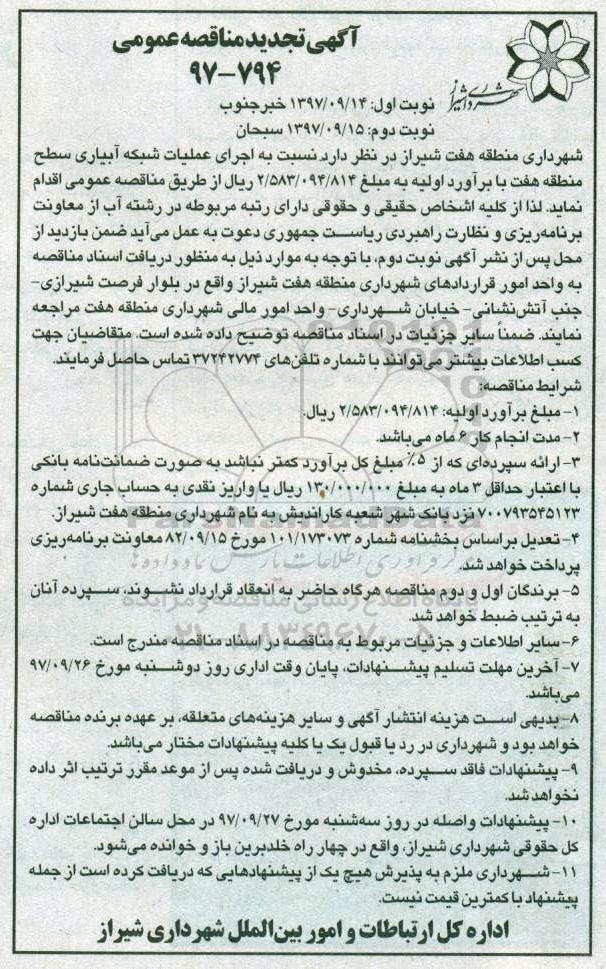 آگهی تجدید مناقصه عمومی
۹۷-۷۹۴
شهرداری شیراز
نوبت اول: ۱۳۹۷/۰۹/۱۴ خبرجنوب
نوبت دوم: ۱۳۹۷/۰۹/۱۵ سبحان
شهرداری منطقه هفت شیراز در نظر دارد نسبت به اجرای عملیات شبکه آبیاری سطح
منطقه هفت با برآورد اولیه به مبلغ ۲/۵۸۳/۰۹۴/۸۱۴ ریال از طریق مناقصه عمومی اقدام
نماید. لذا از کلیه اشخاص حقیقی و حقوقی دارای رتبه مربوطه در رشته آب از معاونت
برنامه‌ریزی و نظارت راهبردی ریاست جمهوری دعوت به عمل می‌آید ضمن بازدید از
محل پس از نشر آگهی نوبت دوم، با توجه به موارد ذیل به منظور دریافت اسناد مناقصه
به واحد امور قراردادهای شهرداری منطقه هفت شیراز واقع در بلوار فرصت شیرازی-
جنب آتش‌نشانی- خیابان شهرداری- واحد امور مالی شهرداری منطقه هفت مراجعه
نمایند. ضمناً سایر جزئیات در اسناد مناقصه توضیح داده شده است. متقاضیان جهت
کسب اطلاعات بیشتر می‌توانند با شماره تلفن‌های ۳۷۲۴۲۷۷۴ تماس حاصل فرمایند.
شرایط مناقصه:
۱- مبلغ برآورد اولیه: ۲/۵۸۳/۰۹۴/۸۱۴ ریال.
۲- مدت انجام کار ۶ ماه می‌باشد.
۳- ارائه سپرده‌ای که از ۵٪ مبلغ کل برآورد کمتر نباشد به صورت ضمانت‌نامه بانکی
با اعتبار حداقل ۳ ماه به مبلغ ۱۳۰/۰۰۰/۰۰۰ ریال یا واریز نقدی به حساب جاری شماره
۷۰۰۷۹۳۵۴۵۱۲۳ نزد بانک شهر شعبه کاراندیش به نام شهرداری منطقه هفت شیراز.
ParsNamadData
۴- تعدیل براساس بخشنامه شماره ۱۰۱/۱۷۳۰۷۳ مورخ ۸۲/۰۹/۱۵ معاونت برنامه‌ریزی
پرداخت خواهد شد.
۵- برندگان اول و دوم مناقصه هرگاه حاضر به انعقاد قرارداد نشوند، سپرده آنان
به ترتیب ضبط خواهد شد.
پایگاه اطلاع رسانی مناقصه و مزایده
۶- سایر اطلاعات و جزئیات مربوط به مناقصه در اسناد مناقصه مندرج است.
۰۲۱-۸۸۳۴۹۶۷۰-۵
۷- آخرین مهلت تسلیم پیشنهادات، پایان وقت اداری روز دوشنبه مورخ ۹۷/۰۹/۲۶
می‌باشد.
۸- بدیهی است هزینه انتشار آگهی و سایر هزینه‌های متعلقه، بر عهده برنده مناقصه
خواهد بود و شهرداری در رد یا قبول یک یا کلیه پیشنهادات مختار می‌باشد.
۹- پیشنهادات فاقد سپرده، مخدوش و دریافت شده پس از موعد مقرر ترتیب اثر داده
نخواهد شد.
۱۰- پیشنهادات واصله در روز سه‌شنبه مورخ ۹۷/۰۹/۲۷ در محل سالن اجتماعات اداره
کل حقوقی شهرداری شیراز، واقع در چهار راه خلدبرین باز و خوانده می‌شود.
۱۱- شهرداری ملزم به پذیرش هیچ یک از پیشنهادهایی که دریافت کرده است از جمله
پیشنهاد با کمترین قیمت نیست.
اداره کل ارتباطات و امور بین‌الملل شهرداری شیراز